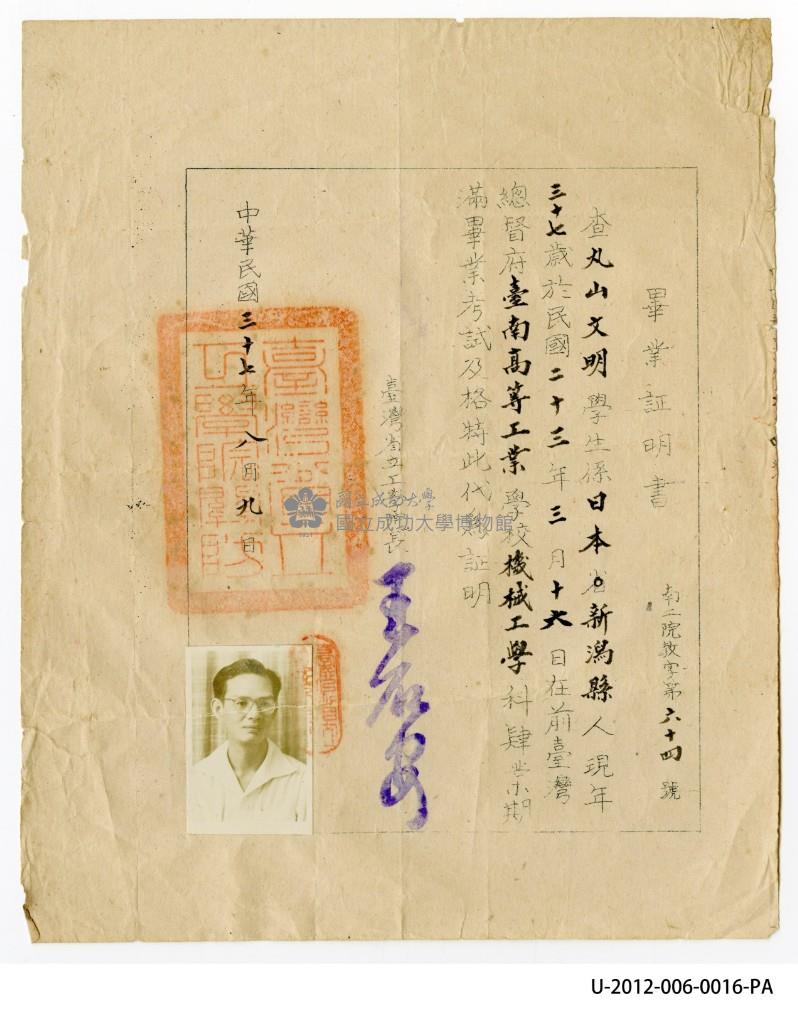 畢業証明書
南工院教字第六十四號
查丸山文明學生係日本省新潟縣人現年
三十七歲於民國二十三年三月十六日在前臺灣
總督府臺南高等工業學校機械工學科肄業期
滿畢業考試及格特此代發証明
臺灣省立工學院院長
王石安
中華民國三十七年八月九日
國立成功大學
國立成功大學博物館
1931
U-2012-006-0016-PA